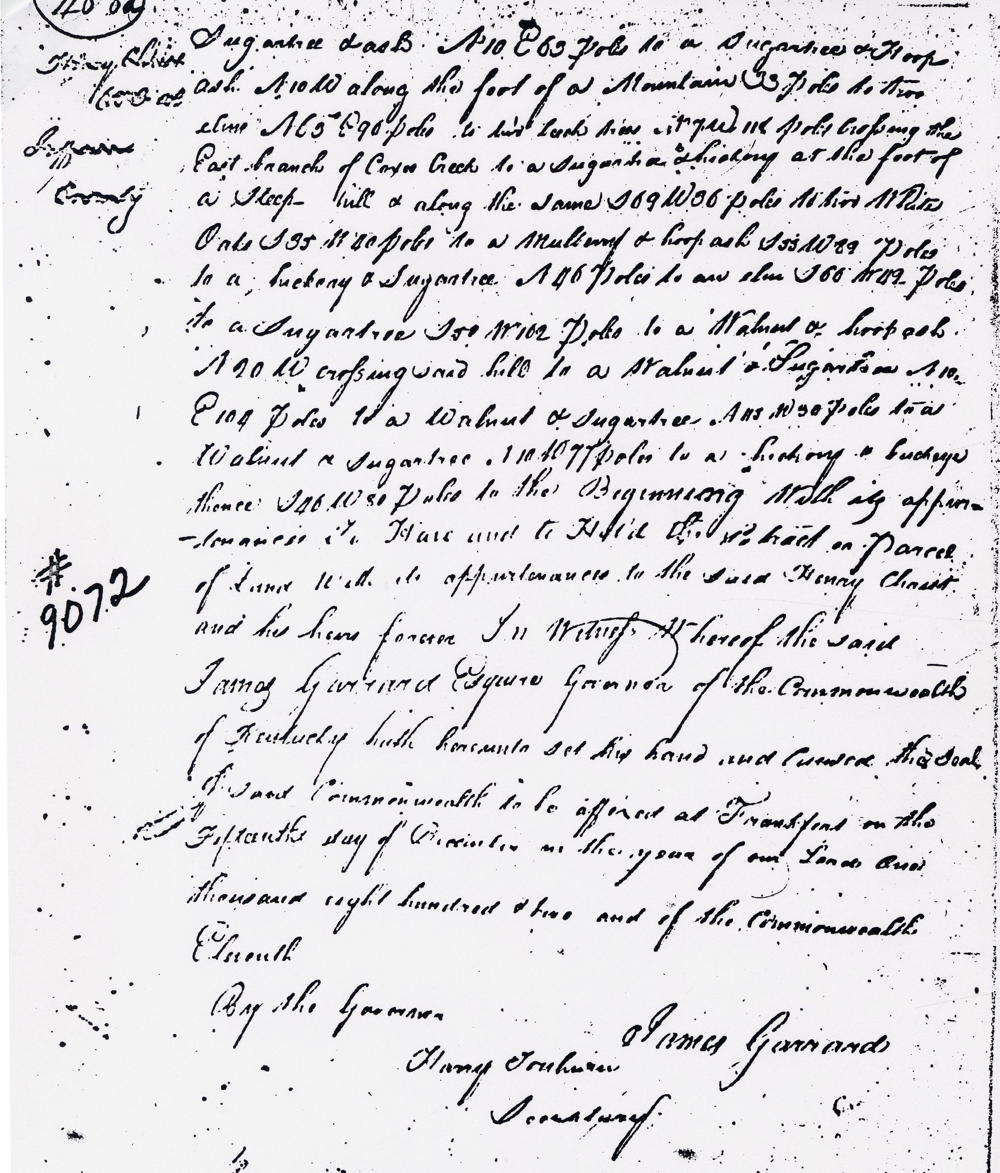 Henry Christ
Jefferson
County
Sugartree & ash N10 E 63 poles to a Sugartree & Hoop
ash N10W along the foot of a Mountain 33 Poles to two
elms N65 E90 poles to two poles Crossing the
East branch of Coxes Creek to a Sugartree & hickory at the foot of
a Steep hill & along the same S69W36 poles to two White
Oaks S35 W40 poles to a Mulberry & hoop ash S53W89 Poles
to a hickory & Sugartree N46 Poles to an elm S66 W49 Poles
to a Sugartree S50 W102 Poles to a Walnut & hoop ash
N20W crossing said hill to a Walnut & Sugartree N10
E104 Poles to a Walnut & Sugartree N45 W30 Poles to a
Walnut & Sugartree N10W77 poles to a hickory & buckeye
thence S40W80 Poles to the Beginning With its appur=
-tenances To Have and to Hold the sd tract or Parcel
of Land With its appurtenances to the said Henry Christ
and his heirs forever In Witness Whereof the said
James Garrard Esquire Governor of the Commonwealth
of Kentucky hath hereunto set his hand and Caused the Seal
of said Commonwealth to be affixed at Frankfort on the
Fifteenth day of December in the year of our Lord One
thousand eight hundred & two and of the Commonwealth
Eleventh
#
9072
By the Governor
James Garrard
Harry Toulmin
Secretary